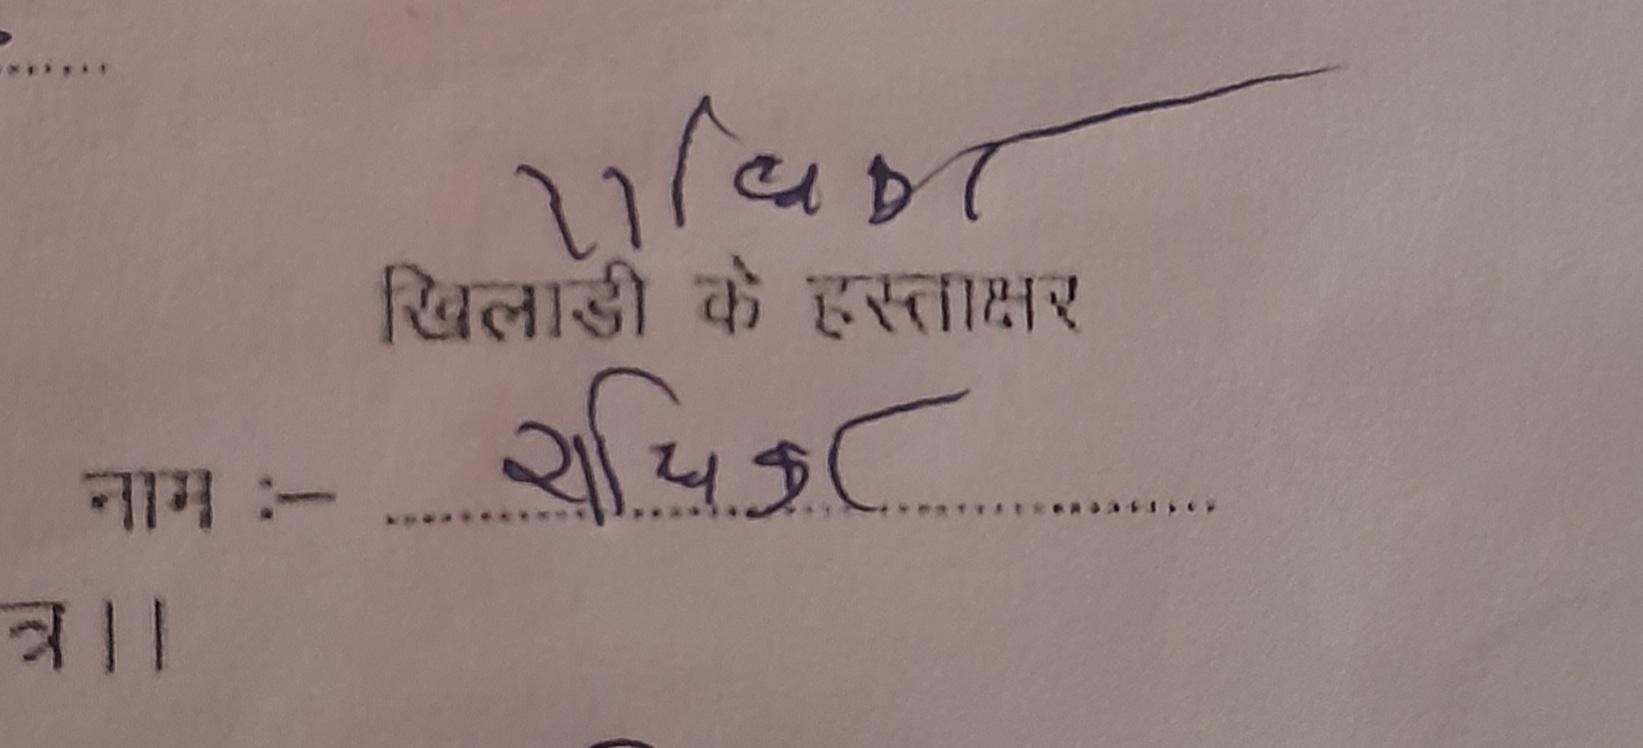 राधिका
खिलाडी के हस्ताक्षर
नाम :- राधिका
त्र ||